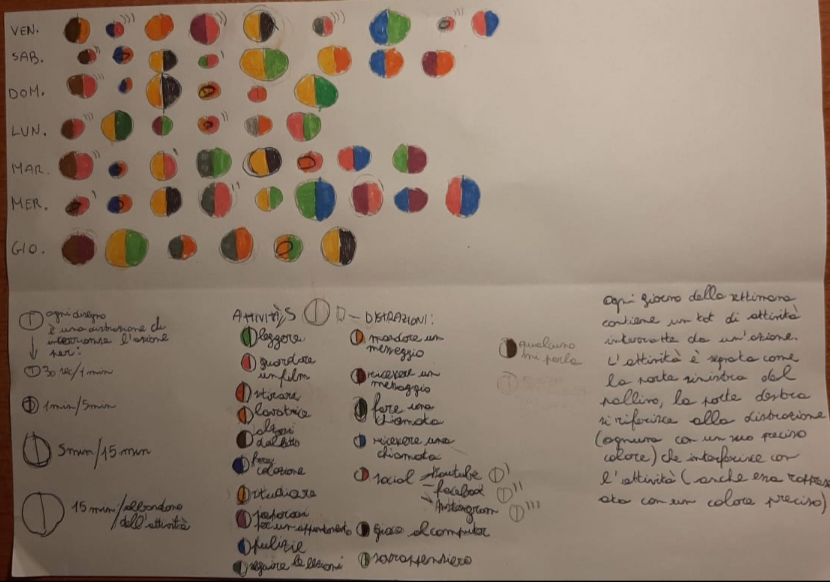 VEN.
SAB.
DOM.
LUN.
MAR.
MER.
GIO.
ogni disegno
è una distrazione che
interrompe l'azione
per:
30 sec/1 min
1 min/5min
5min/15min
15 min/abbandono
dell'attività
ATTIVITÀ, S
D - DISTRAZIONI:
leggere
guardare
un film
stirare
lavatrice
alzarsi
dal letto
fare
colazione
studiare
prepararsi
per un appuntamento
pulizie
seguire le lezioni
mandare un
messaggio
ricevere un
messaggio
fare una
chiamata
ricevere una
chiamata
social
Youtube
facebook
Instagram
gioco al computer
sovrappensiero
qualcuno
mi parla
ogni giorno della settimana
contiene un tot di attività
interrotte da un'azione.
L'attività è segnata come
la parte sinistra del
pallino, la parte destra
si riferisce alla distrazione
(ognuna con un suo preciso
colore) che interferisce con
l'attività (anche essa
con un colore preciso)